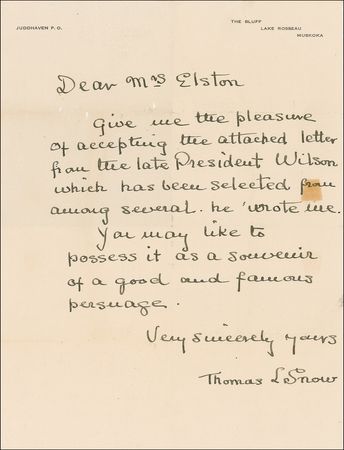 JUDDHAVEN P. O.
THE BLUFF
LAKE ROSSEAU
MUSKOKA
Dear Mrs Elston
Give me the pleasure
of accepting the attached letter
from the late President Wilson
which has been selected from
among several he wrote me.
You may like to
possess it as a souvenir
of a good and famous
persuage.
Very sincerely yours
Thomas L Snow